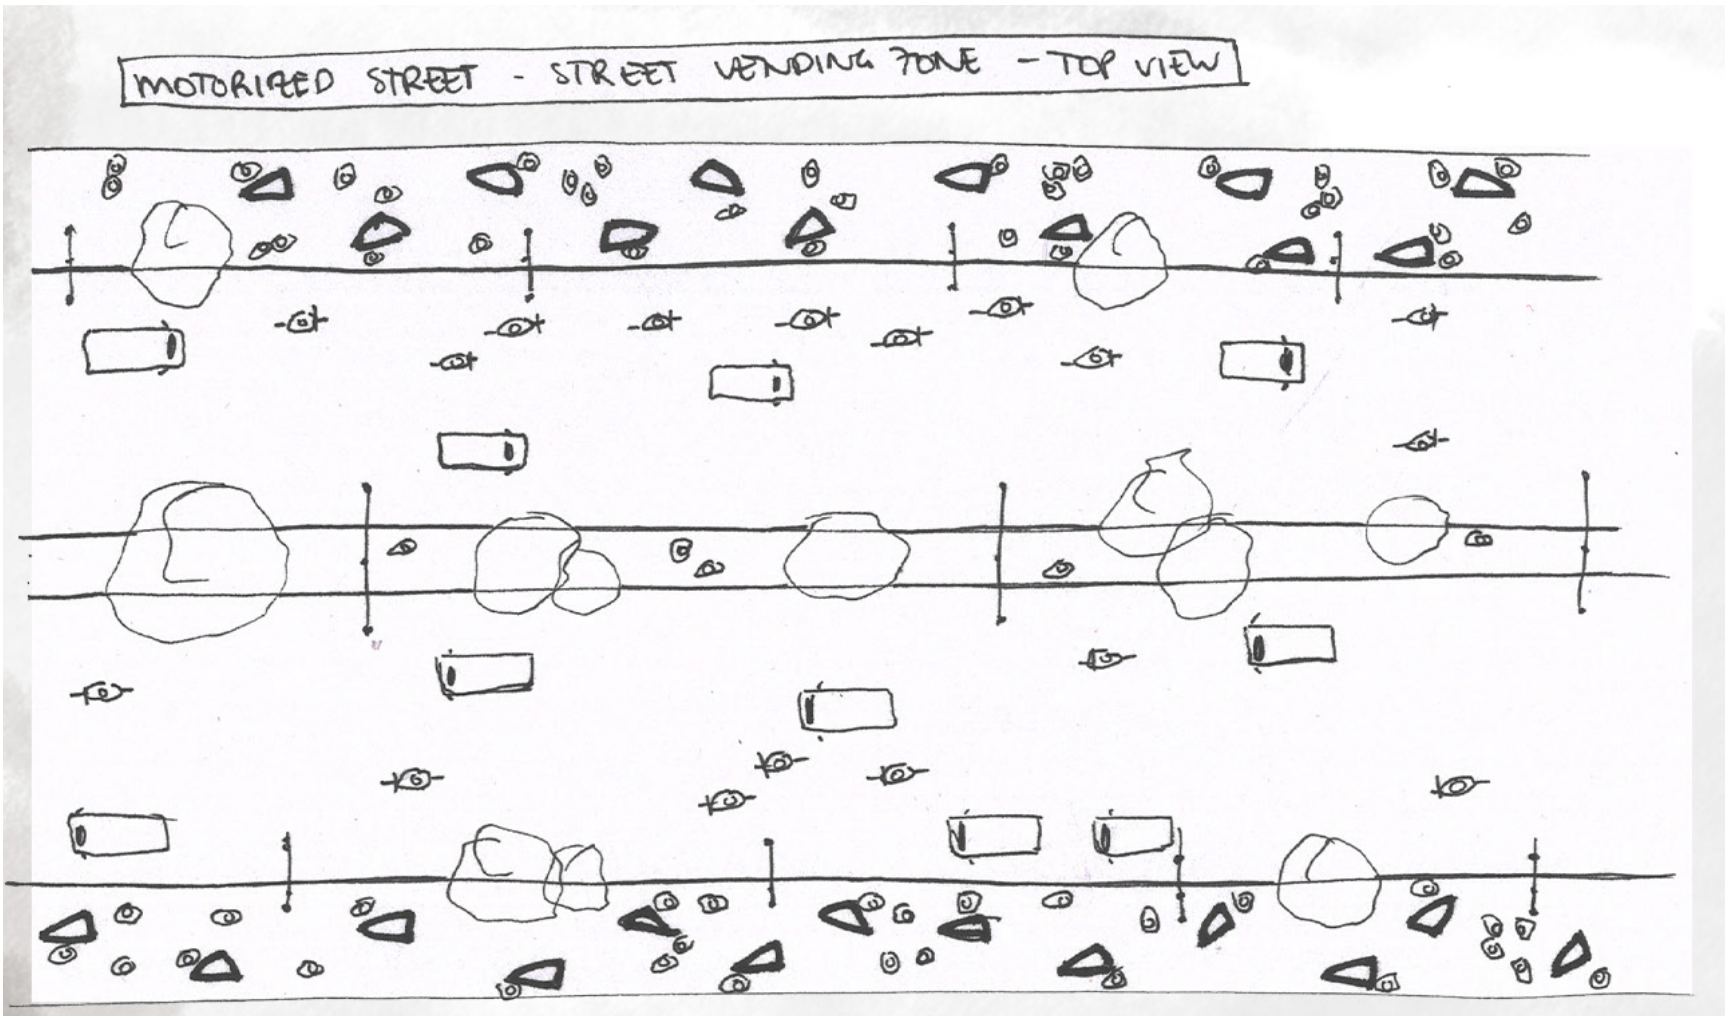 MOTORIZED STREET - STREET VENDING ZONE - TOP VIEW